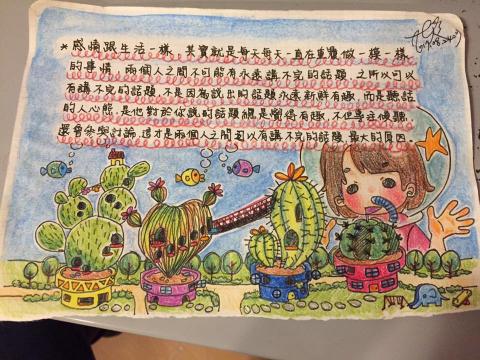 *感情跟生活一樣, 其實就是每天每天一直在重覆做一樣一樣
的事情. 兩個人之間不可能有永遠講不完的話題. 之所以可以
有講不完的話題, 不是因為說出的話題永遠新鮮有趣, 而是聽話
的人心態, 是他對於你說的話題總是覺得有趣, 不但專注傾聽,
還會參與討論. 這才是兩個人之間可以有講不完的話題, 最大的原因.